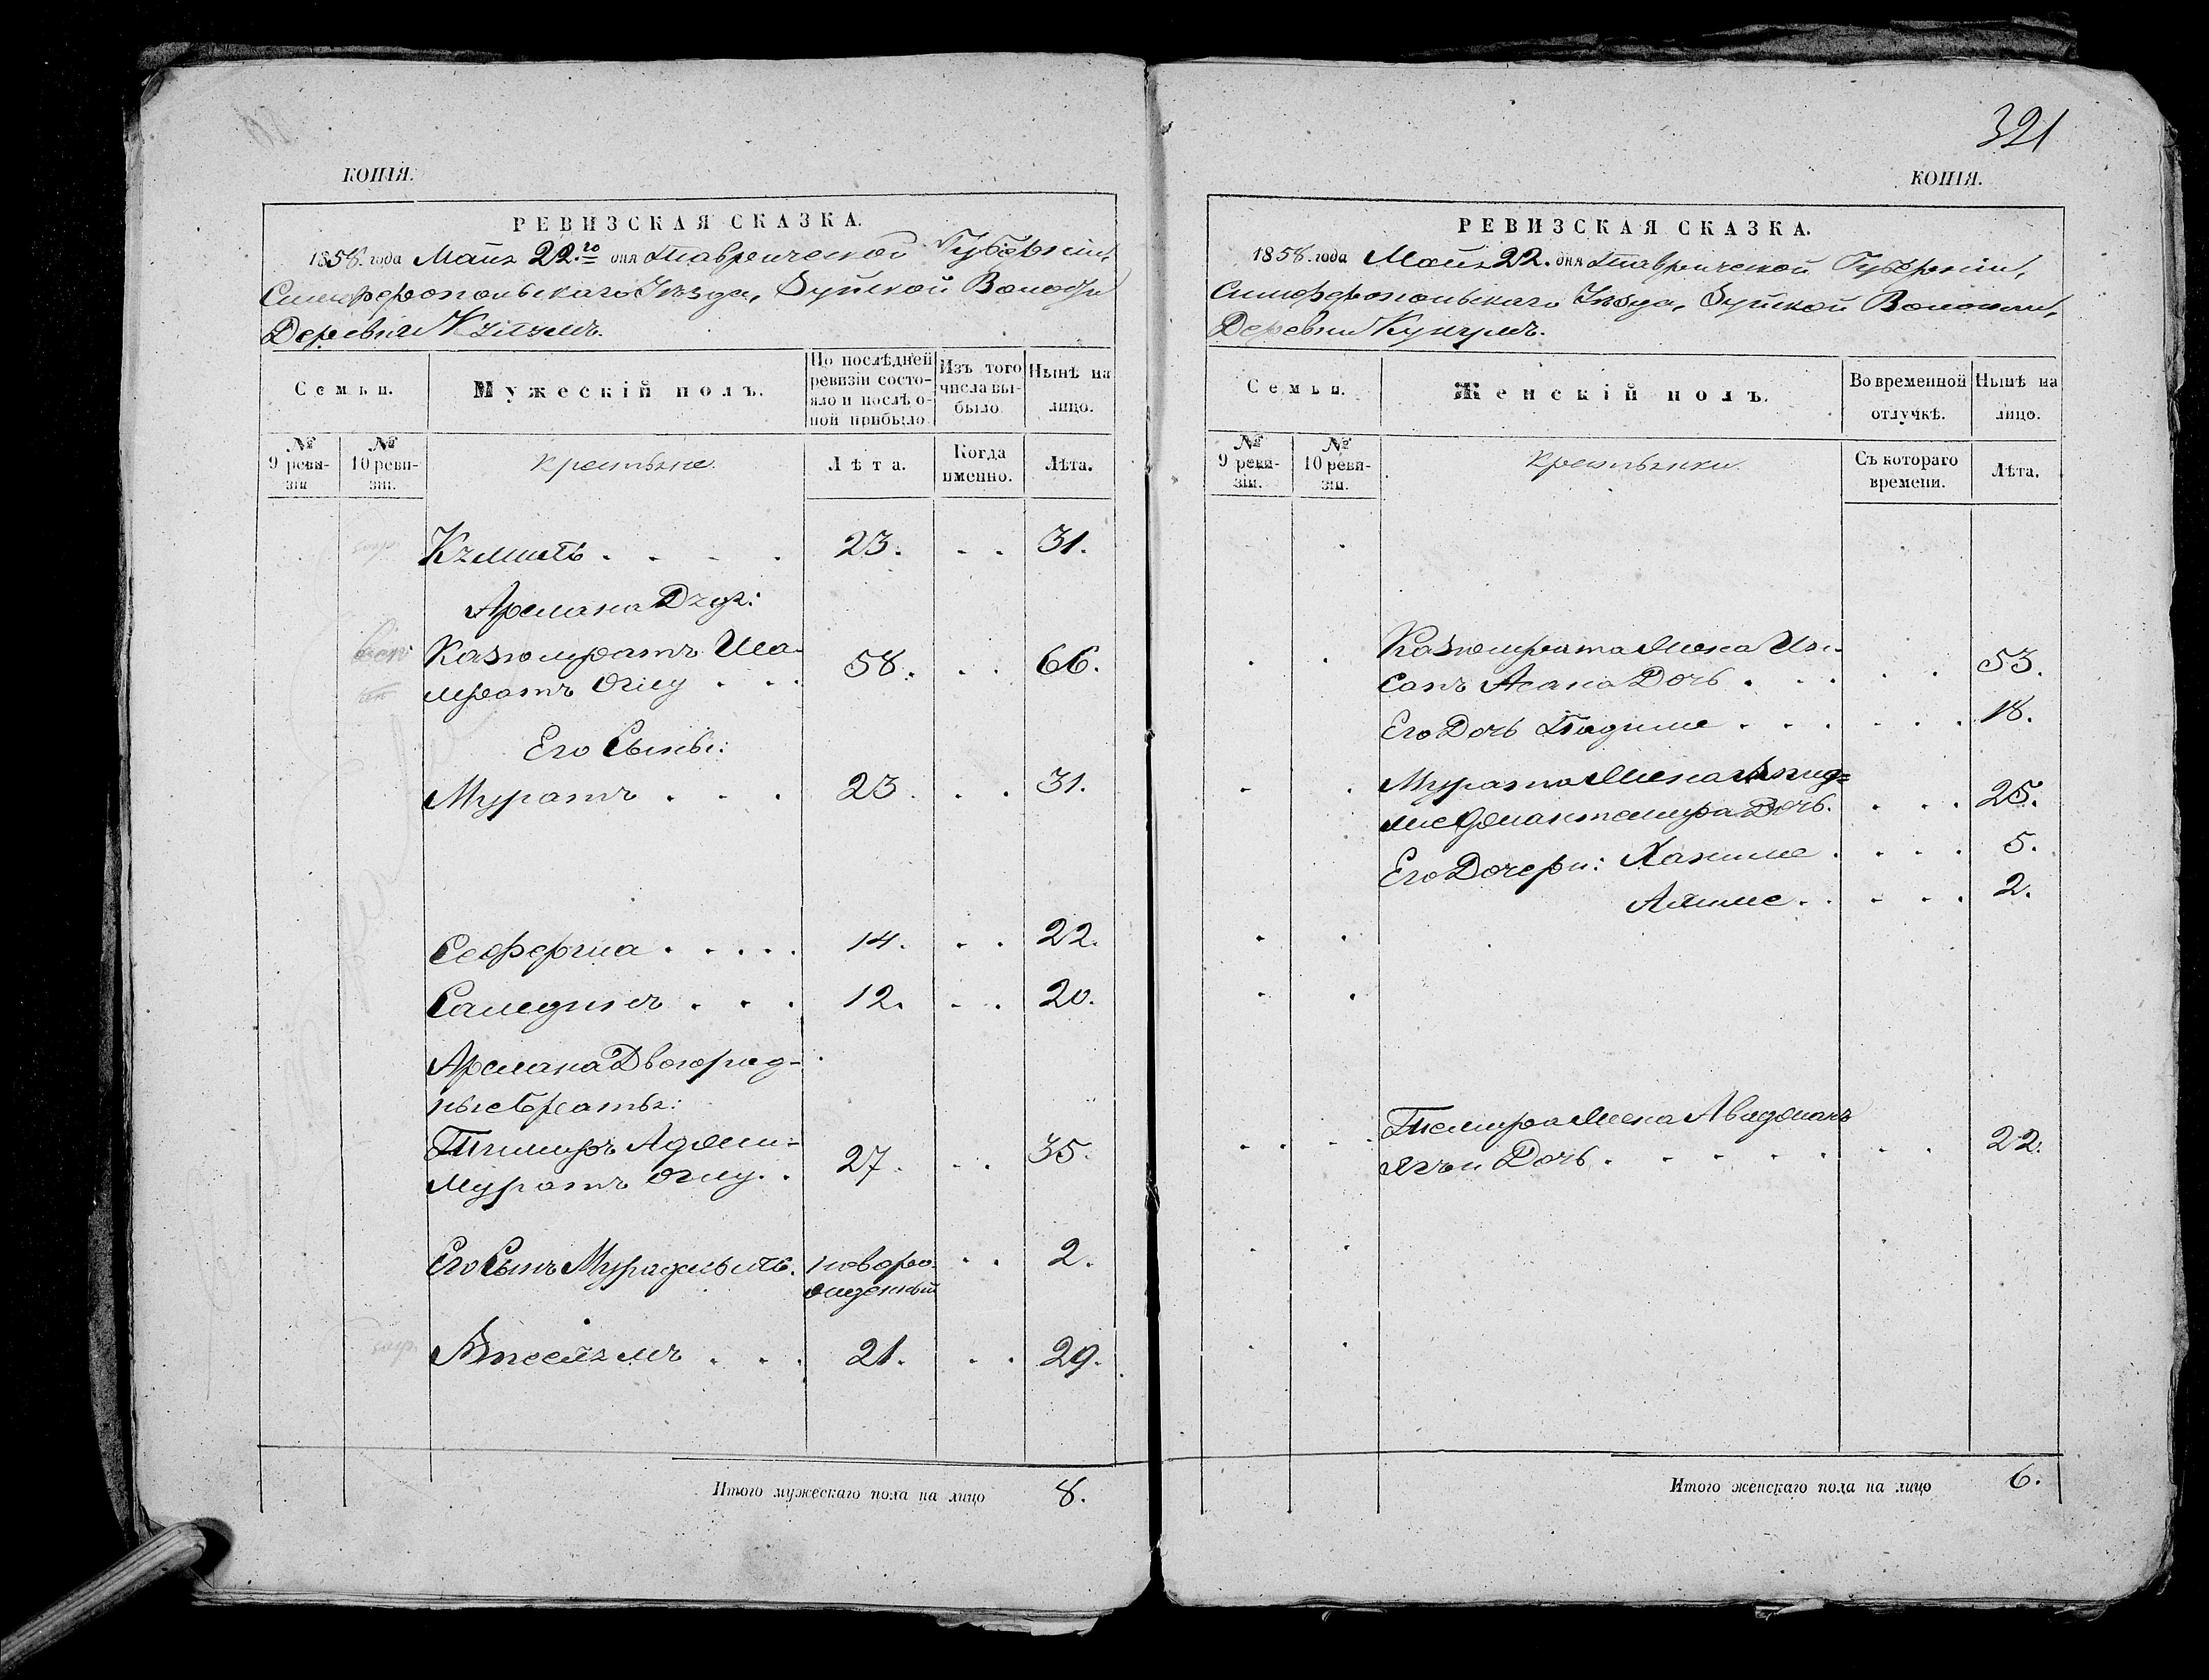 КОПІЯ.
РЕВИЗСКАЯ СКАЗКА.
1858. года Маія 22.го дня Таврической Губерніи,
Симферопольскаго Уѣзда, Зуйской Волости
Деревни
Семьи.
Мужескій полъ.
По послѣдней ревизіи состояло и послѣ оной прибыло.
Изъ того числа выбыло.
Нынѣ на лицо.
№ 9 ревизіи
№ 10 ревизіи.
Крестьяне.
Лѣта.
Когда именно.
Лѣта.
23. . . 31.
Арслана Дядя:
Казмуратъ Ша-
муратъ Оглу . . . 58. . . 66.
Его Сыновья:
Муратъ . . . 23. . . 31.
Сеферша . . . . . 14. . . 22.
Саледин . . . 12. . . 20.
Арслана Двоюрод-
ные Братья:
Темиръ Аджи-
Муратъ Оглу. . 27. . . 35.
Его Сынъ новоро- . . 2.
жденный
. . . 21. . . 29.
Итого мужескаго пола на лицо 8.
321
КОПІЯ.
РЕВИЗСКАЯ СКАЗКА.
1858. года Маія 22. дня Таврической Губерніи,
Симферопольскаго Уѣзда, Зуйской Волости,
Деревни
Семьи.
Женскій полъ.
Во временной отлучкѣ.
Нынѣ на лицо.
№ 9 ревизіи.
№ 10 ревизіи.
Крестьянки.
Съ котораго времени.
Лѣта.
Казмурата Жена
Асана Дочь . . . . . 53.
Его Дочь . . . . . . 18.
Мурата Жена
Джантемира Дочь. . . . 25.
Его Дочери: Ханиме . . . . 5.
Алиме . . . . . 2.
Темира Жена
Дочь . . . . . . . . 22.
Итого женскаго пола на лицо 6.